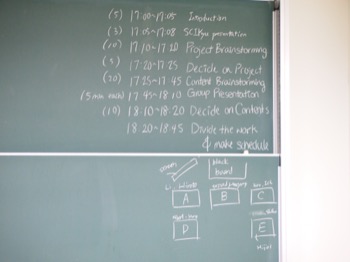 (5) 17:00~17:05 Introduction
(3) 17:05~17:08 presentation
(10) 17:10~17:20 Project Brainstorming
(5) 17:20~17:25 Decide on Project
(20) 17:25~17:45 Content Brainstorming
(5min each) 17:45~18:10 Group Presentation
(10) 18:10~18:20 Decide on Contents
18:20~18:45 Divide the work
& make schedule
black
board
A B C
D E